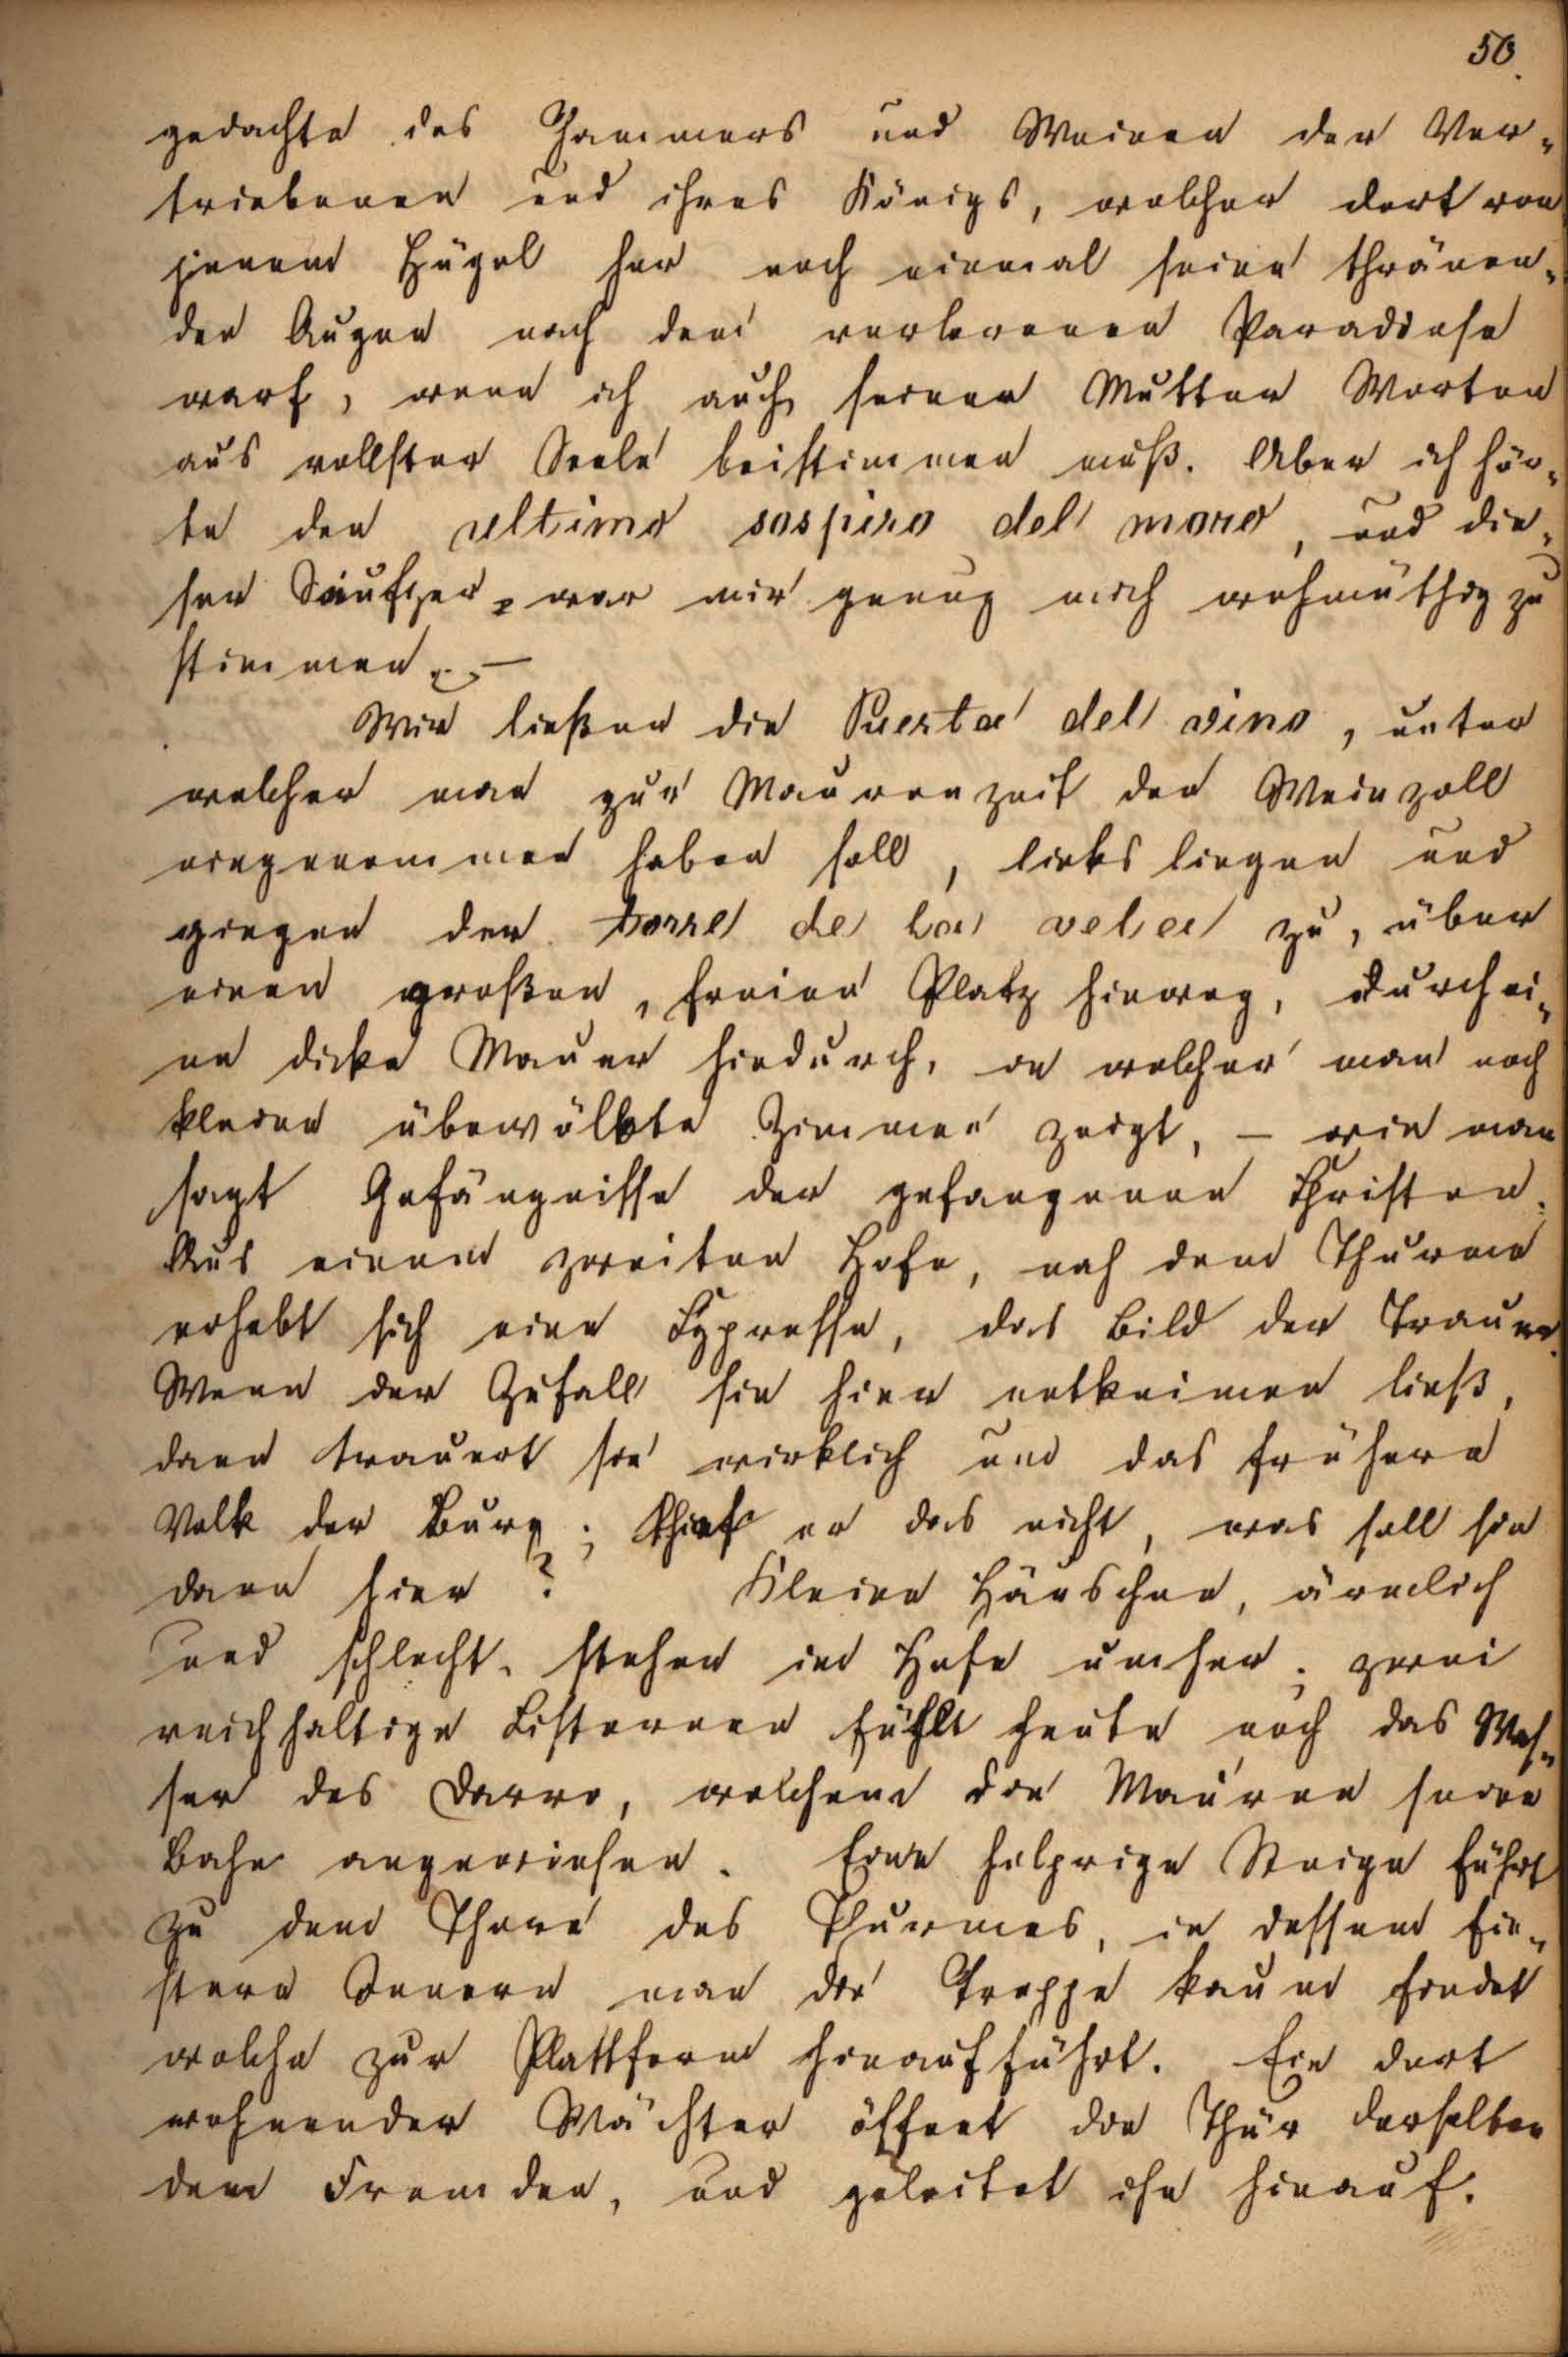 50.
gedachte des Jammers und Weinen der Ver-
triebenen und ihres Königs, welcher dort von
jenem Hügel her noch einmal seine thränen-
den Augen nach dem verlorenen Paradiese
warf, wenn ich auch seiner Mutter Worten
aus vollster Seele beistimmen muß. Aber ich hör-
te den ultimo sospiro del moro, und die-
ser Seufzer, war mir genug mich wehmüthig zu
stimmen. –
Wir ließen die Puerta del vino, unter
welcher man zur Maurenzeit den Weinzoll
eingenommen haben soll, links liegen und
gingen der torre de la vela zu, über
einen großen, freien Platz hinweg, durch ei-
ne dicke Mauer hindurch, in welcher man noch
kleine überwölbte Zimmer zeigt, – wie man
sagt Gefängnisse der gefangenen Christen.
Aus einem zweiten Hofe, nah dem Thurme
erhebt sich eine Cypresse, das Bild der Trauer.
Wenn der Zufall sie hier entkeimen ließ,
dann trauert sie wirklich um das frühere
Volk der Burg; thut er das nicht, was soll sie
dann hier? Kleine Häuschen, ärmlich
und schlecht, stehen im Hofe umher; zwei
reichhaltige Cisternen füllt heute noch das Was-
ser des Darro, welchem die Mauren seine
Bahn angewiesen. Eine holprige Steige führt
zu dem Thore des Thurmes, in dessem fin-
stern Innern man die Treppe kaum findet
welche zur Plattform hinaufführt. Ein dort
wohnender Wächter öffnet die Thür derselben
dem Fremden, und geleitet ihn hinauf.